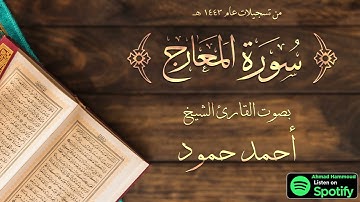 من تسجيلات عام ١٤٤٣ هـ
﴿ سُورَةُ المَعَارِجِ ﴾
بصوت القارئ الشيخ
أحمد حمود
Ahmad Hammoud
Listen on
Spotify